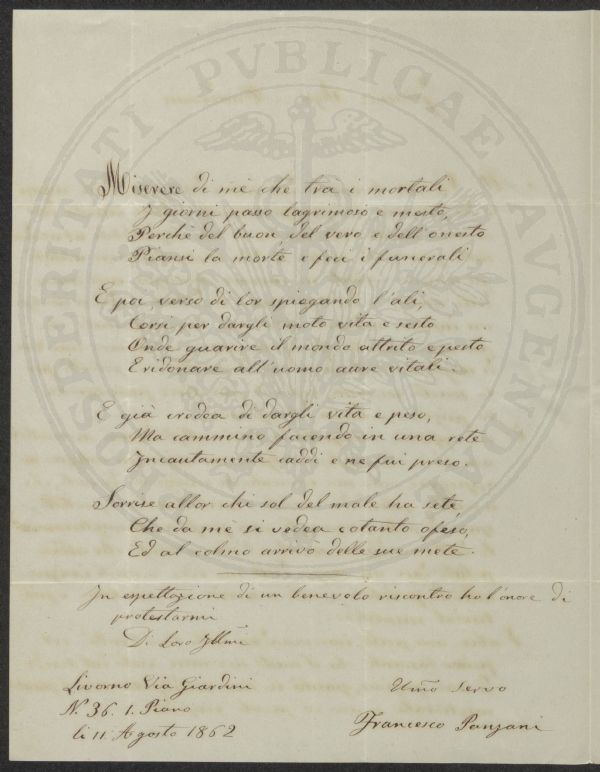 PROSPERITATI PVBLICAE AVGENDAE
Miserere di me che tra i mortali
I giorni passo lagrimoso e mesto,
Perchè del buon, del vero, e dell'onesto
Piansi la morte e feci i funerali
E poi, verso di lor spiegando l'ali,
Corsi per dargli moto vita e sesto
Onde guarire il mondo attrito e pesto
E ridonare all'uomo aure vitali.
E già credea di dargli vita e peso,
Ma cammino facendo in una rete
Incautamente caddi e ne fui preso.
Sorrise allor chi sol del male ha sete
Che da me si vedea cotanto ofeso,
Ed al colmo arrivò delle sue mete.
In espettazione di un benevolo riscontro ho l'onore di
protestarmi
Di Loro Illmi
Livorno Via Giardini
N. 36. 1. Piano
li 11 Agosto 1862
Umo Servo
Francesco Panzani